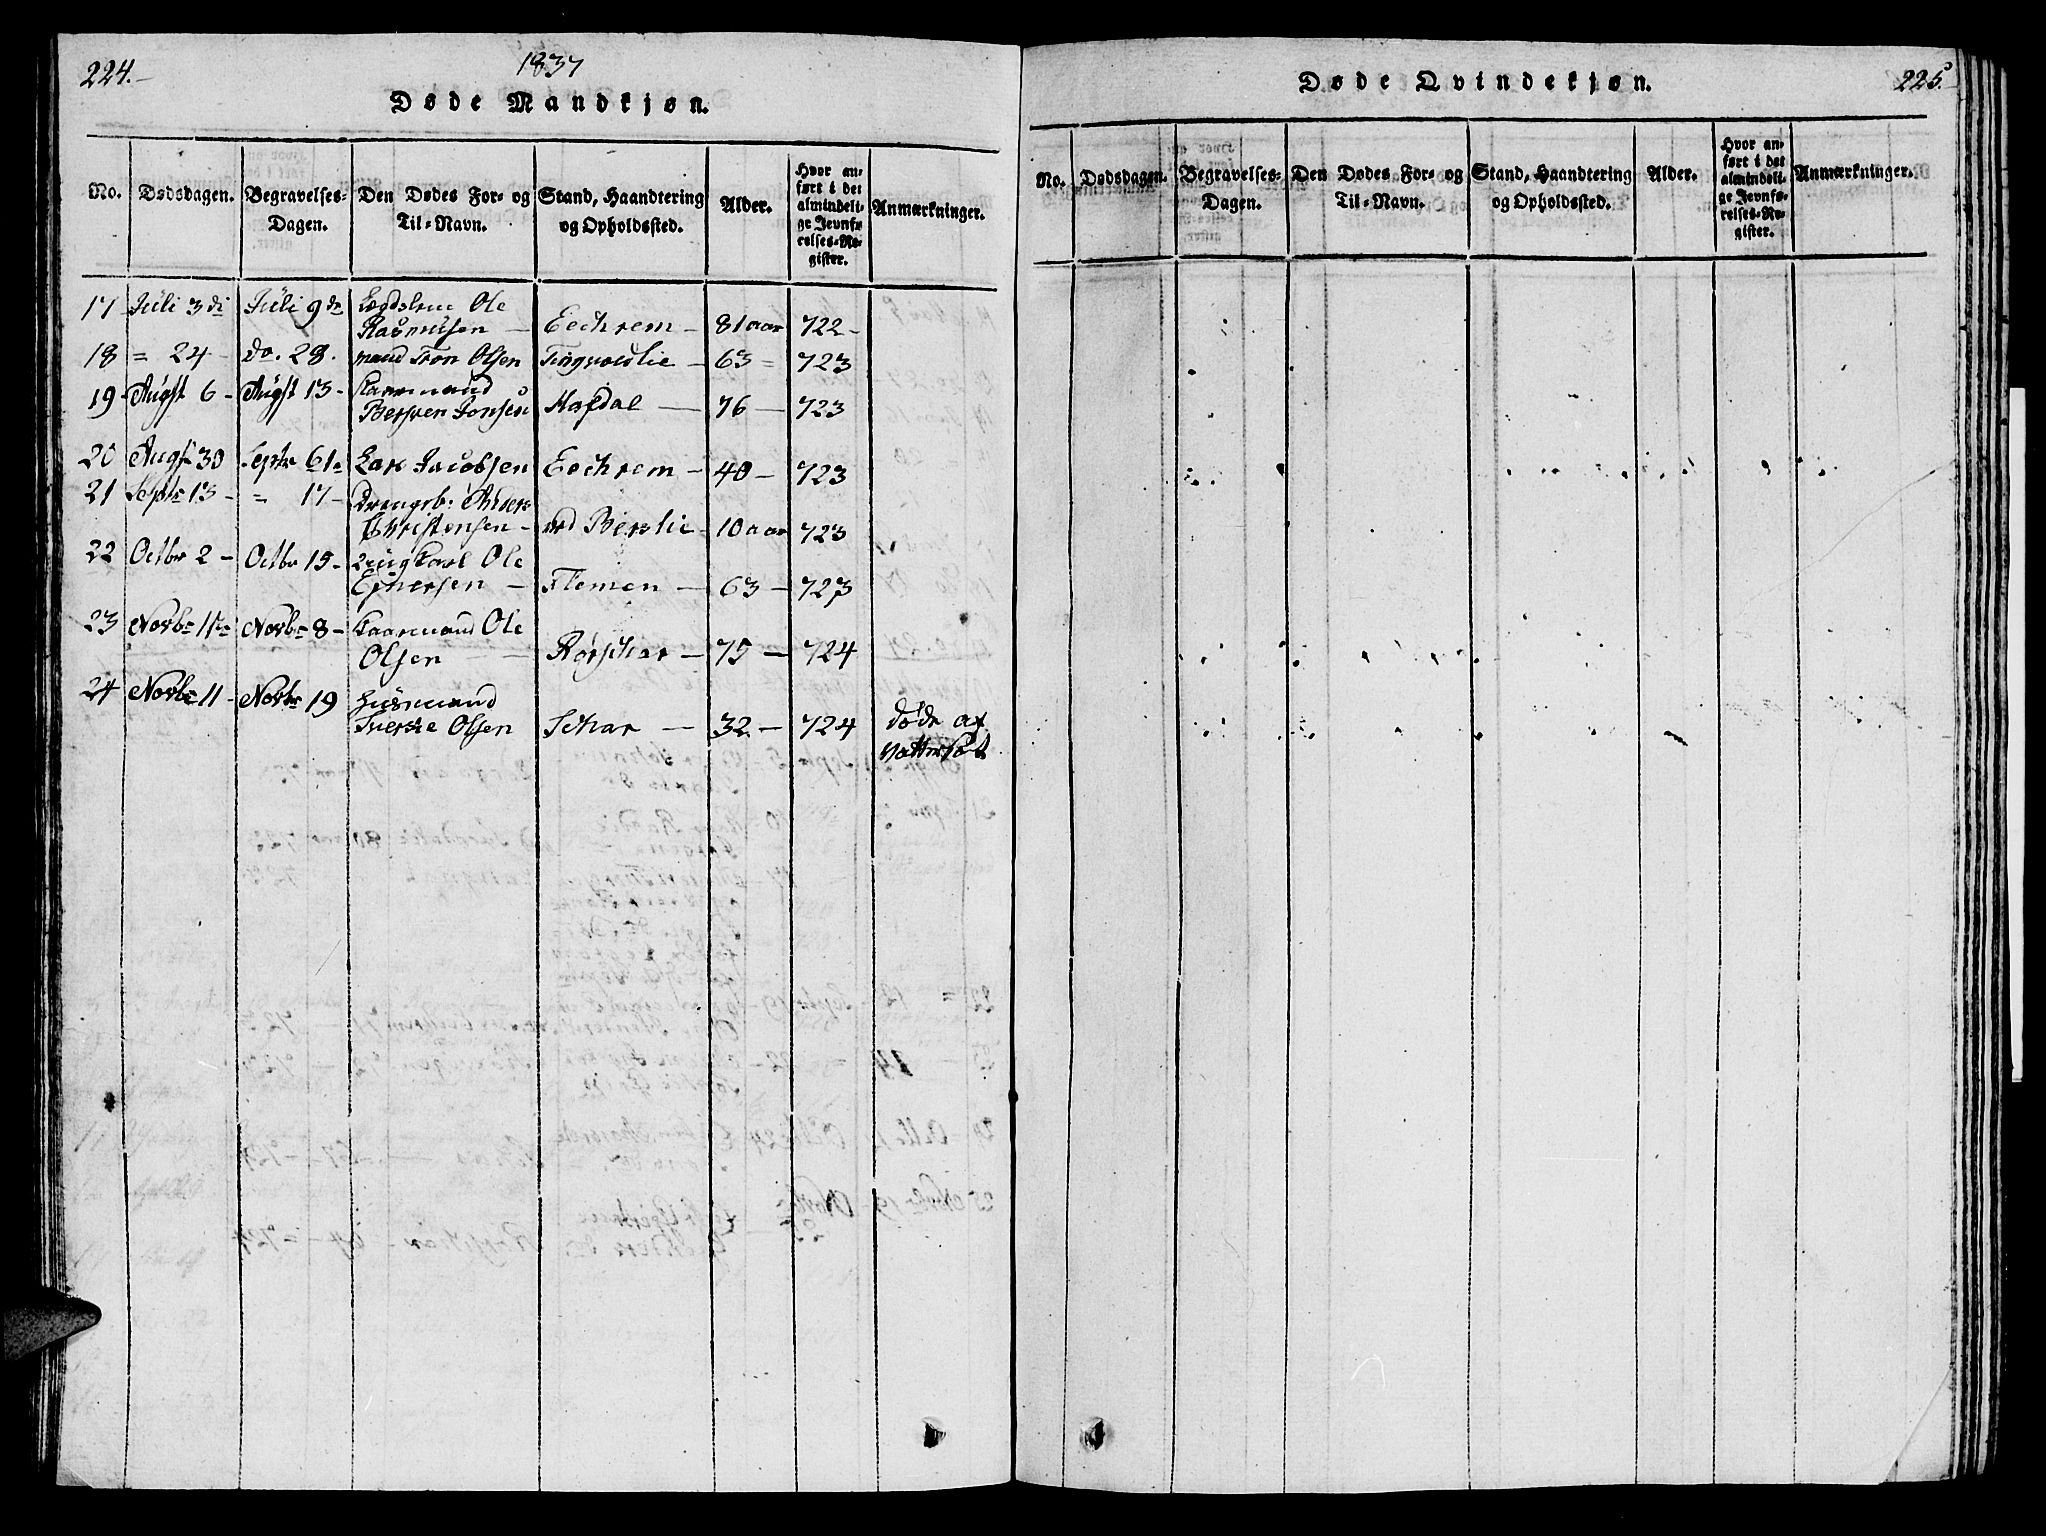 224.
1837
Døde Mandkjøn.
No. Dødsdagen. Begravelses-Dagen. Den Dødes For- og Til-Navn. Stand, Haandtering og Opholdssted. Alder. Hvor anført i det almindelige Jevnførelses-Register. Anmærkninger.
17 Juli 3di Juli 9de Lægdslem Ole
Rasmusen — Eechrem — 81 aar 722 —
18 = 24 — do. 28. mand Tron Olsen Tingvoldlie — 63 = 723
19 Augst 6 — Augst 13 — Kaarmand
Bersven Jonsen Hafdal — 76 — 723
20 Augst 30 Septr Lars Jacobsen Eechrem — 40 — 723
21 Septr 13 — = 17 — Drengb: Anders
Christensen — Berslie — 10 aar 723
22 Octbr 2 — Octbr 15 — Ungkarl Ole
Ejnersen — Flemen — 63 — 723
23 Novbr Novbr 8 — Kaarmand Ole
Olsen — Rørschar — 75 — 724
24 Novbr 11 — Novbr 19 Huusmand
Sverke Olsen Schar — 32 — 724 døde af
Vattersot
Døde Qvindekjøn.
225.
No. Dødsdagen. Begravelses-Dagen. Den Dødes For- og Til-Navn. Stand, Haandtering og Opholdssted. Alder. Hvor anført i det almindelige Jevnførelses-Register. Anmærkninger.